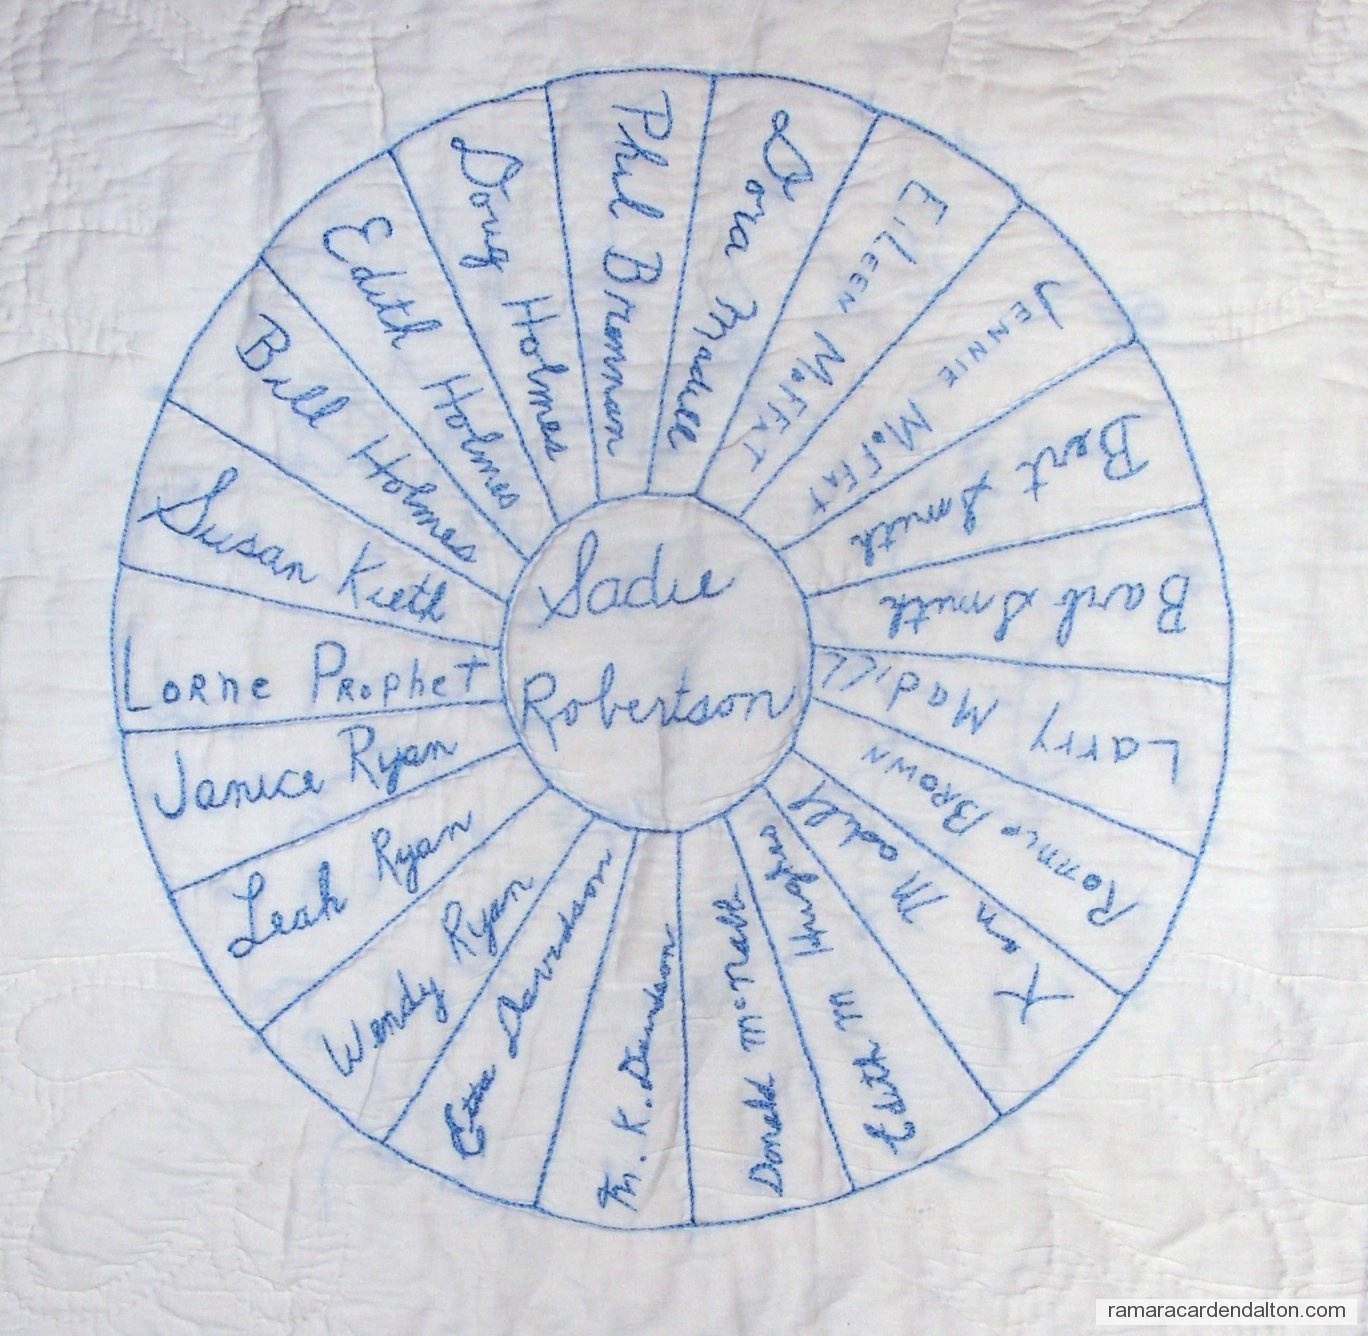 Sadie
Robertson
Phil Brennan
Dora Madill
EiLEEN MOFFAT
JENNIE MOFFAT
Bert Smith
Barb Smith
Larry Madill
Ronnie BROWN
Ken Madill
Edith M Hughes
Donald McNabb
K. Davidson
Etta Davidson
Wendy Ryan
Leah Ryan
Janice Ryan
Lorne Prophet
Susan Kieth
Bill Holmes
Edith Holmes
Doug Holmes
ramaracardendalton.com